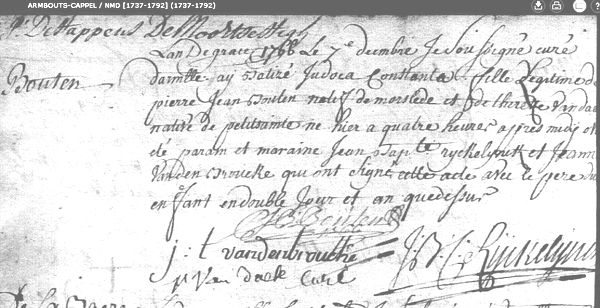 ARMBOUTS-CAPPEL / NMD [1737-1792] (1737-1792)
P. De Happens De Moor
Lan De grace 1766 Le 7e decembre Je Soussigné curé
Bouten
d ay Batizé Judoca Constantia fille Legitime de
pierre Jean Bouten natif de morslede et de therese Vanda
native de petitsainte ne hier a quatre heures apres midi et
été parain et maraine Jean Bapte Ryckelynck et Jeann
Vanden Broucke qui ont signé cette acte avec le pere du
en fant en double Jour et an que dessus
P J Bouten
j : t vandenbroucke
J: B: C: Ryckelynck
p Van dack Curé